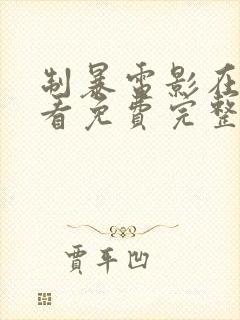 制暴雷影在
看免费完整
贾平凹